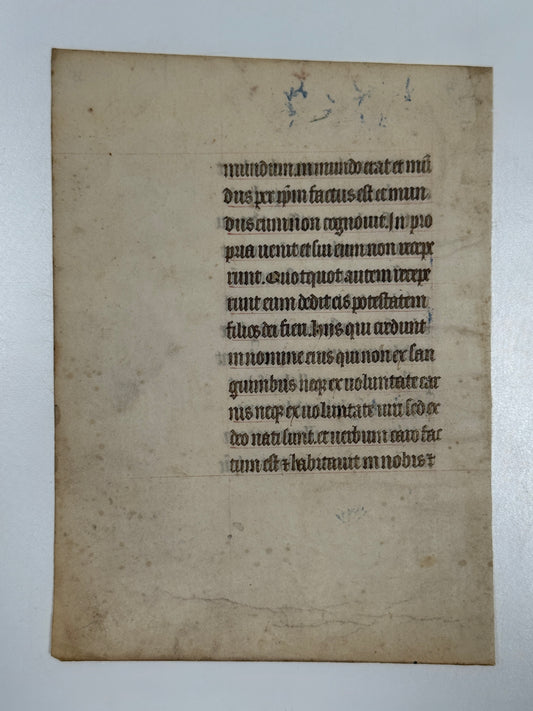 mundum. in mundo erat et mū
dus per ip̄m factus est et mun
dus eum non cognovit. In pro
pria uenit et sui eum non recepe
runt. Quotquot autem recepe
runt eum dedit eis potestatem
filios dei fieri. hiis qui credunt
in nomine eius qui non ex san
guinibus neqꝫ ex uoluntate car
nis neqꝫ ex uoluntate uiri sed ex
deo nati sunt. et uerbum caro fac
tum est ⁊ habitauit in nobis ⁊